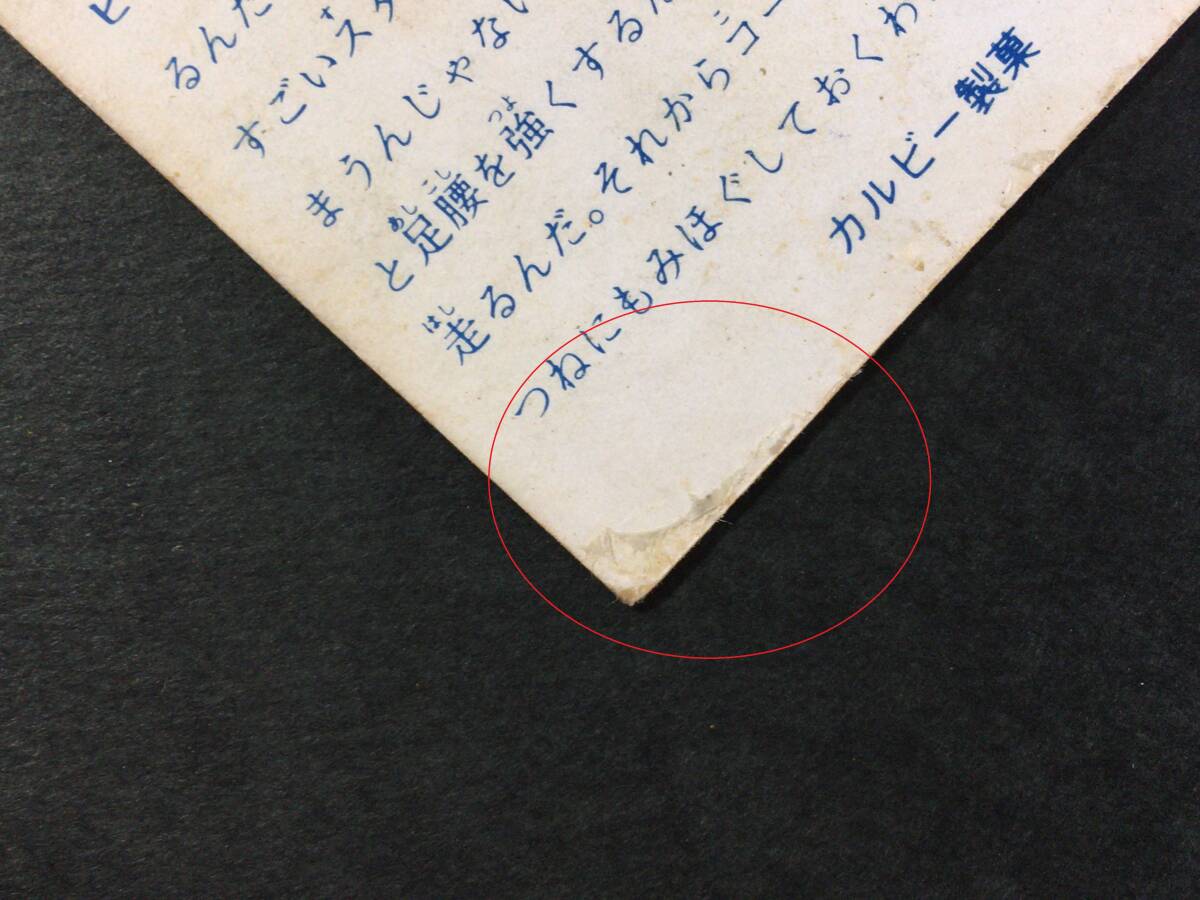 るんだ
すごいスタ
まうんじゃない
と足腰を強くするん
走るんだ。それからコー
つねにもみほぐしておくわ
カルビー製菓